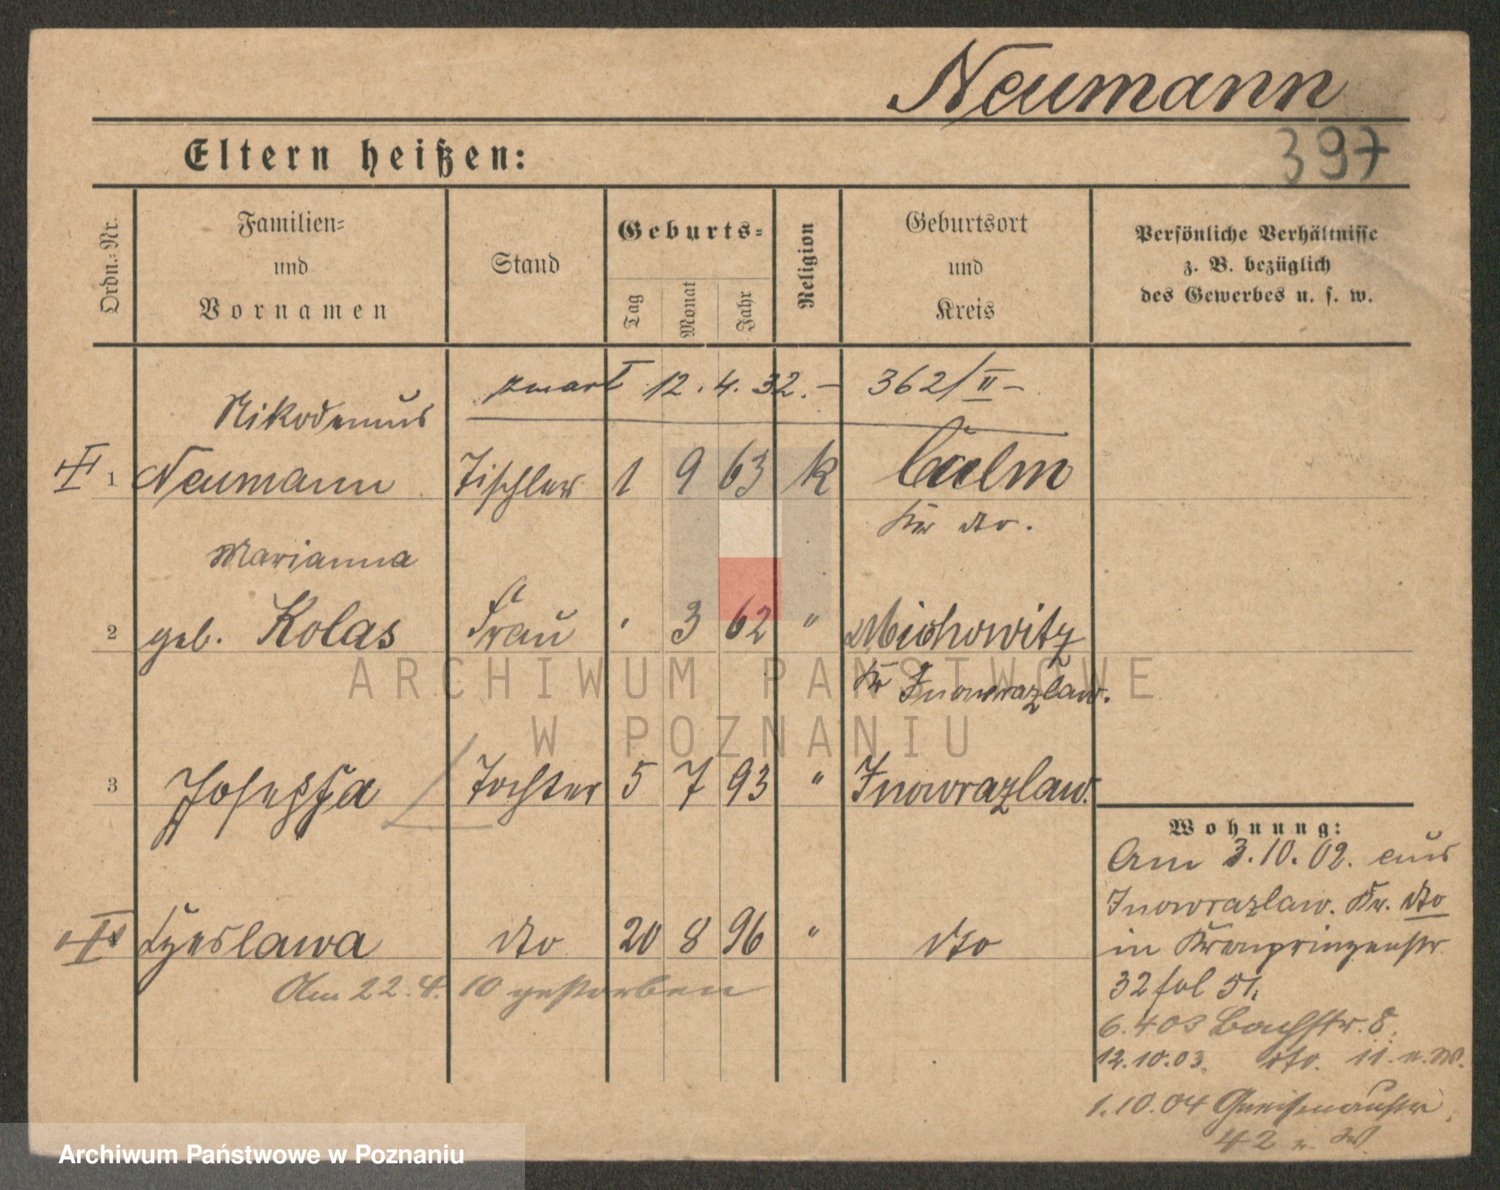 Neumann
397
Eltern heißen:
Ordn.-Nr.
Familien-
und
Vornamen
Stand
Geburts-
Tag
Monat
Jahr
Religion
Geburtsort
und
Kreis
Persönliche Verhältnisse
z. B. bezüglich
des Gewerbes u. s. w.
zmarł 12.4.32.– 362/II–
Nikodemus
1 Neumann Tischler 1 9 63 k Culm
Kr dto.
Marianna
2 geb. Kolas Frau " 3 62 " Michowitz
Kr Inowrazlaw.
ARCHIWUM PAŃSTWOWE
W POZNANIU
3 Josepha Tochter 5 7 93 " Inowrazlaw.
Wohnung:
Am 3.10.02. aus
Inowrazlaw. Kr. dto
in Kronprinzenstr
32 fol 51.
Czeslawa dto 20 8 96 " dto
Am 22.4.10 gestorben
6.4.03 Bachstr. 8.
12.10.03. dto. 11.
1.10.04 Gneisenaustr
42
Archiwum Państwowe w Poznaniu